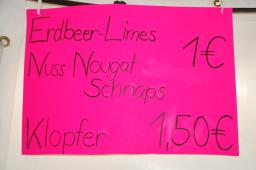 Erdbeer-Limes
1€
Nuss Nougat
Schnaps
Klopfer 1,50€